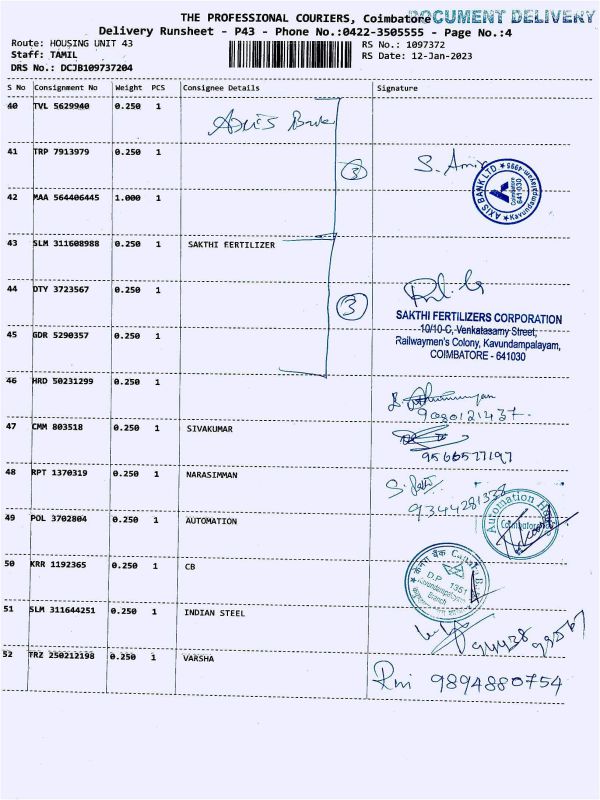 THE PROFESSIONAL COURIERS, Coimbatore DOCUMENT DELIVERY
Delivery Runsheet - P43 - Phone No.:0422-3505555 - Page No.:4
Route: HOUSING UNIT 43
Staff: TAMIL
DRS No.: DCJB109737204
RS No.: 1097372
RS Date: 12-Jan-2023
S No Consignment No Weight PCS Consignee Details Signature
40 TVL 5629940 0.250 1 Axis Bank
41 TRP 7913979 0.250 1
3
AXIS BANK LTD
Coimbatore
641 030
42 MAA 564406445 1.000 1
43 SLM 311608988 0.250 1 SAKTHI FERTILIZER
44 DTY 3723567 0.250 1
3
SAKTHI FERTILIZERS CORPORATION
10/10-C, Venkatasamy Street,
Railwaymen's Colony, Kavundampalayam,
COIMBATORE - 641030
45 GDR 5290357 0.250 1
46 HRD 50231299 0.250 1
9080121437.
47 CMM 803518 0.250 1 SIVAKUMAR
9566577197
48 RPT 1370319 0.250 1 NARASIMMAN
9344281338
49 POL 3702804 0.250 1 AUTOMATION
Automation
Coimbatore
50 KRR 1192365 0.250 1 CB
D.P. 1351
Kavundampalayam
Branch
51 SLM 311644251 0.250 1 INDIAN STEEL
94438
52 TRZ 250212198 0.250 1 VARSHA
9894880754